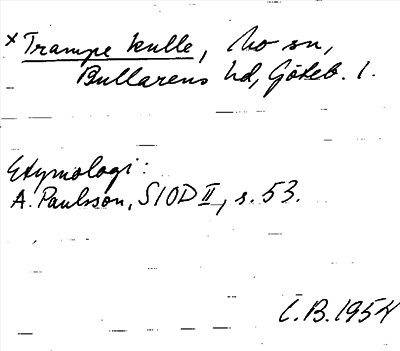 × Trampe kulle, Mo sn,
Bullarens hd, Göteb. l.
Etymologi:
A. Paulsson, SIOD II, s. 53.
C.B. 1954